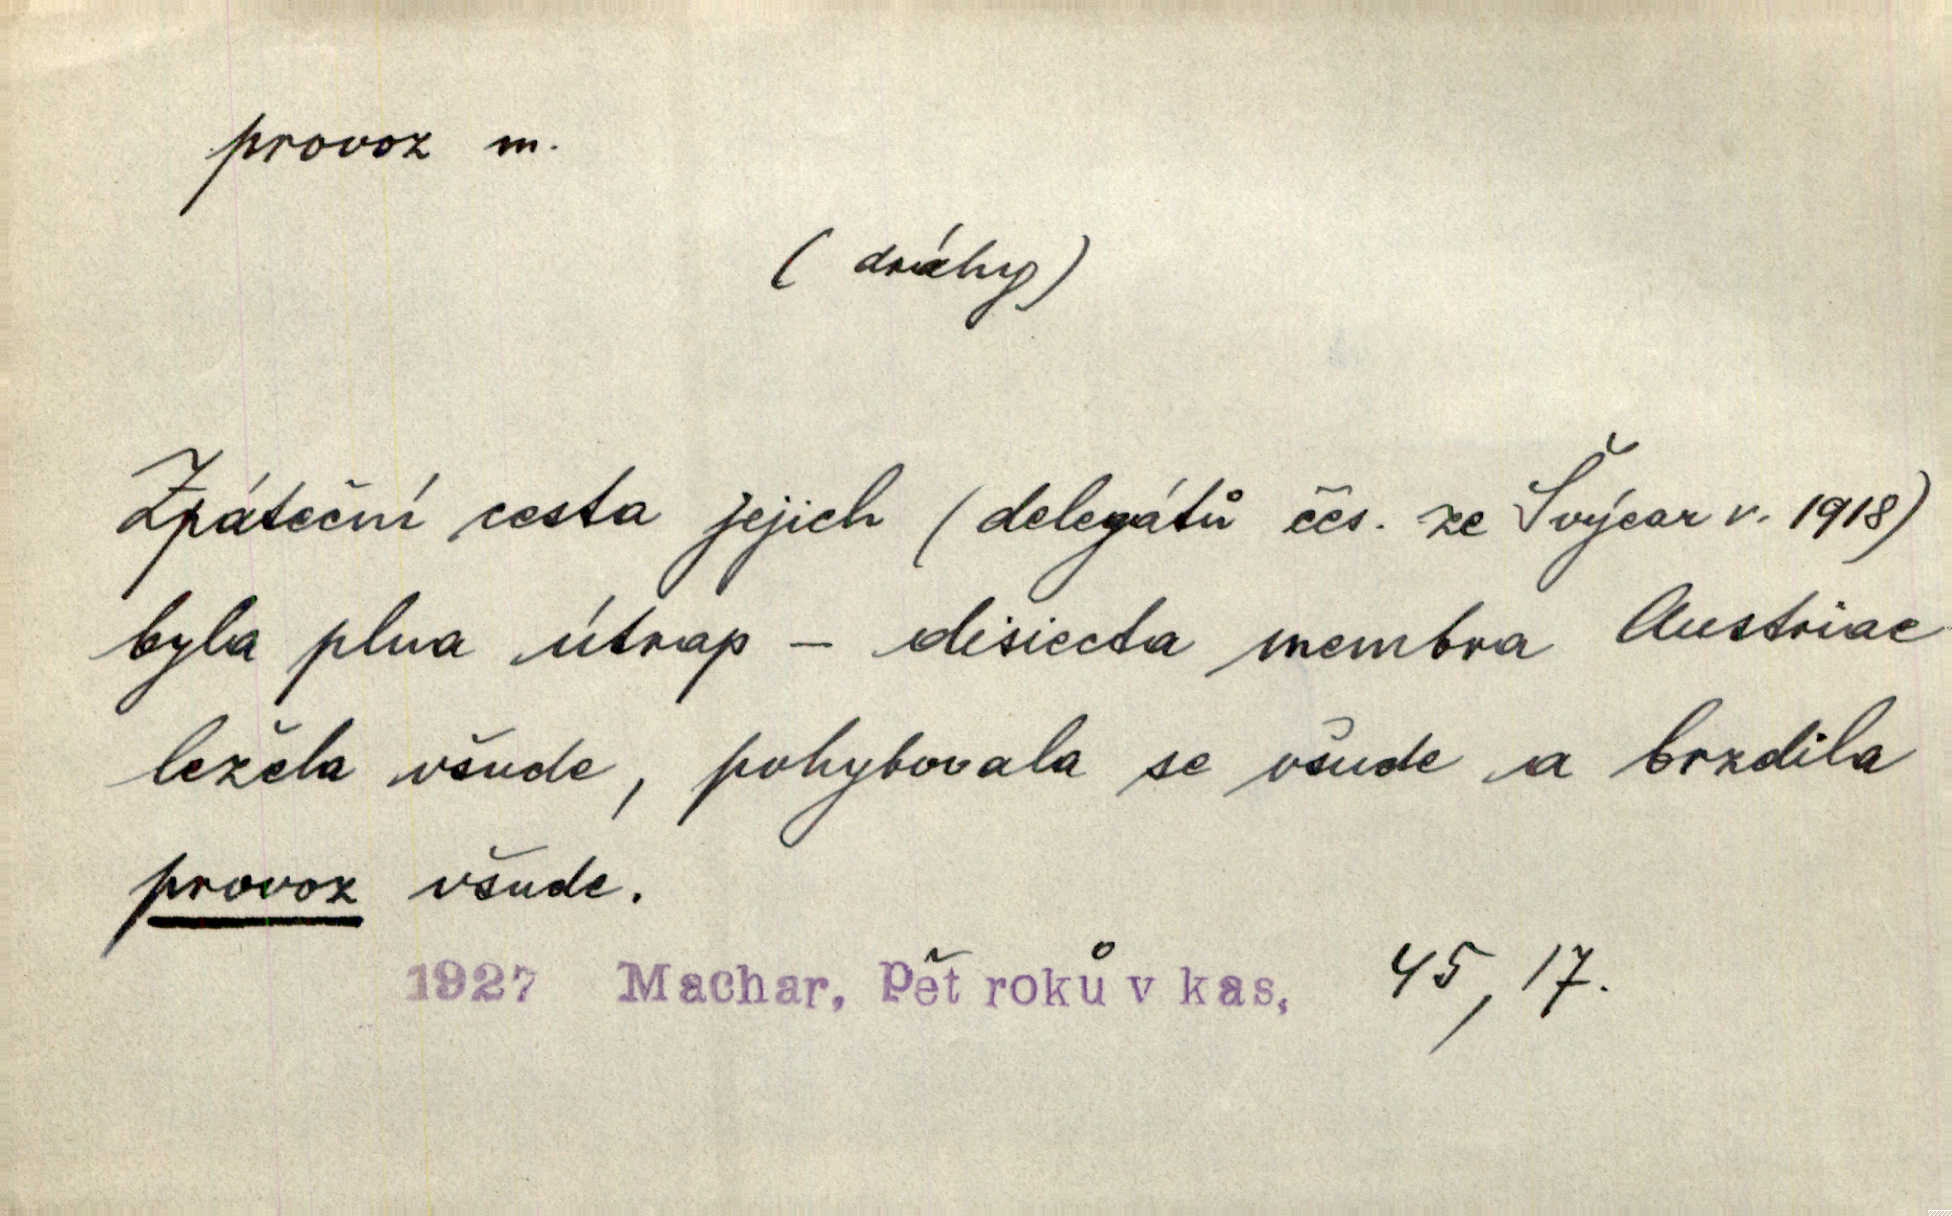 provoz m.
( dráhy)
Zpáteční cesta jejich (delegátů čes. ze Švýcar v. 1918)
byla plna útrap – disiecta membra Austriae
ležela všude, pohybovala se všude a brzdila
provoz všude.
1927 Machar, Pět roků v kas, 45, 17.